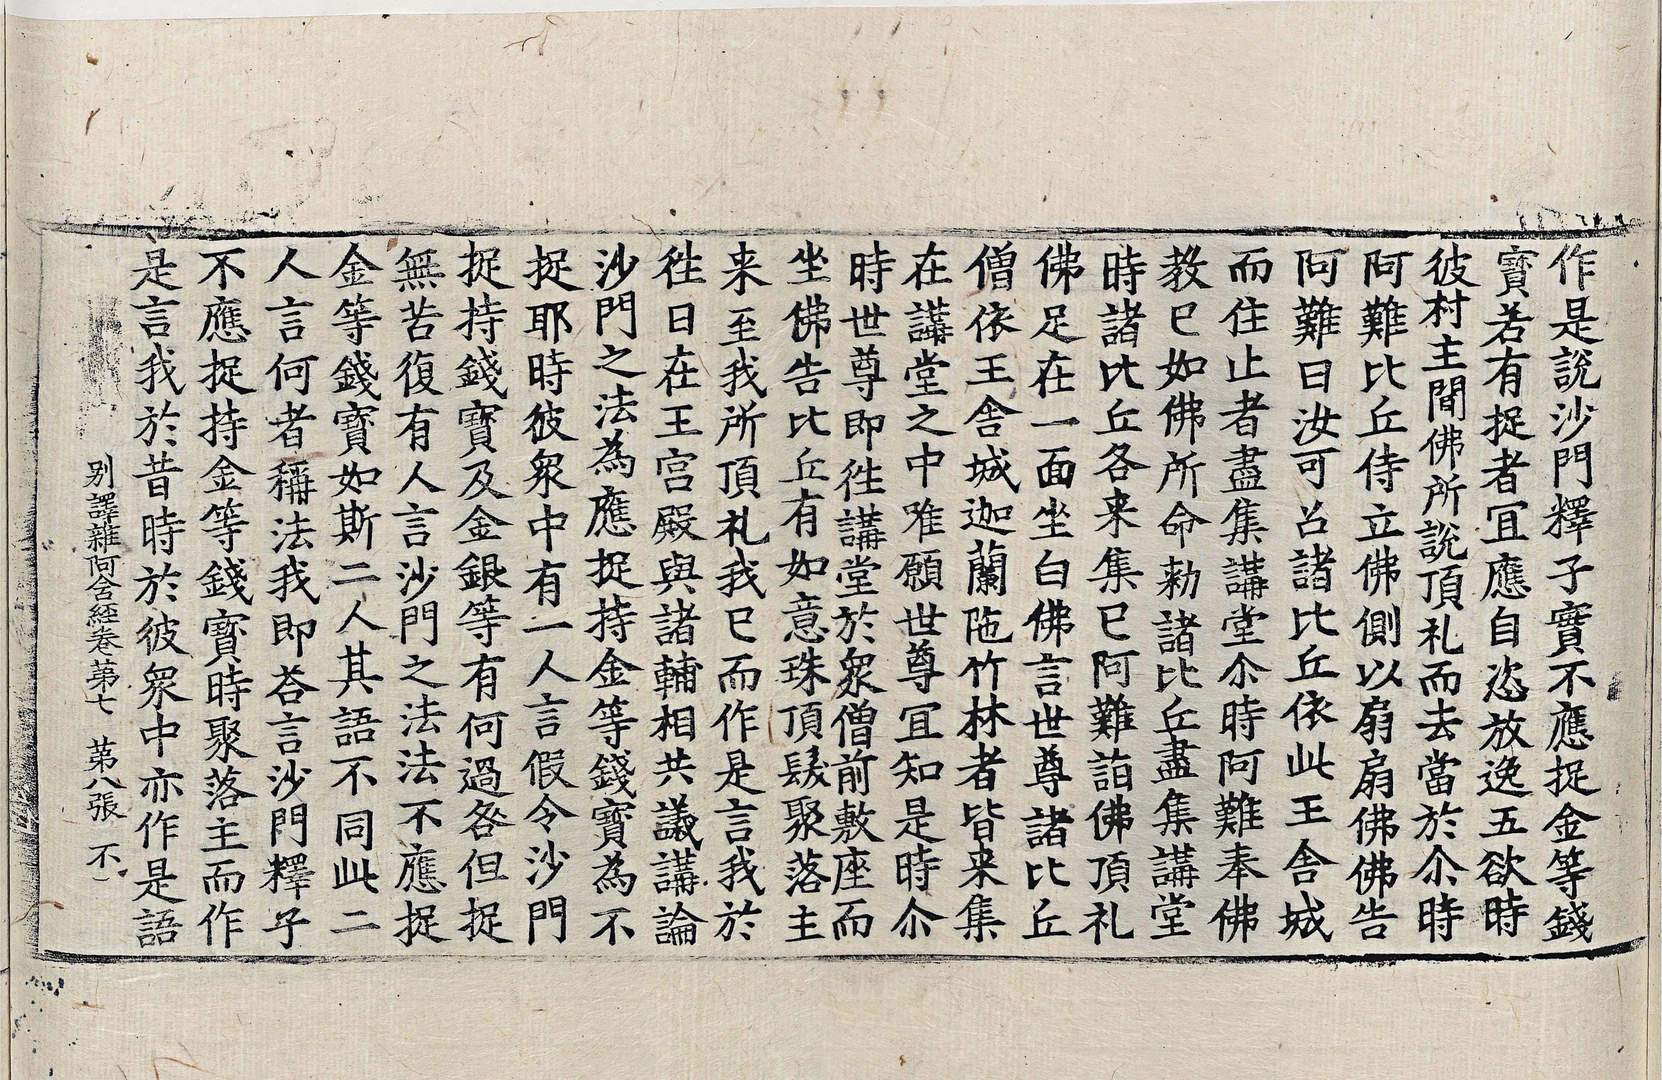 作是說沙門釋子實不應捉金等錢
寶若有捉者冝應自恣放逸五欲時
彼村主聞佛所說頂礼而去當於尒時
阿難比丘侍立佛側以扇扇佛佛告
阿難曰汝可召諸比丘依此王舍城
而住止者盡集講堂尒時阿難奉佛
教已如佛所命勑諸比丘盡集講堂
時諸比丘各来集已阿難詣佛頂礼
佛足在一面坐白佛言世尊諸比丘
僧依王舍城迦蘭陁竹林者皆来集
在講堂之中唯願世尊冝知是時尒
時世尊即徃講堂於衆僧前敷座而
坐佛告比丘有如意珠頂髮聚落主
来至我所頂礼我已而作是言我於
徃日在王宫殿與諸輔相共議講論
沙門之法為應捉持金等錢寶為不
捉耶時彼衆中有一人言假令沙門
捉持錢寶及金銀等有何過咎但捉
無苦復有人言沙門之法法不應捉
金等錢寶如斯二人其語不同此二
人言何者稱法我即荅言沙門釋子
不應捉持金等錢寶時聚落主而作
是言我於昔時於彼衆中亦作是語
别譯雜阿含經卷第七　第八張　不